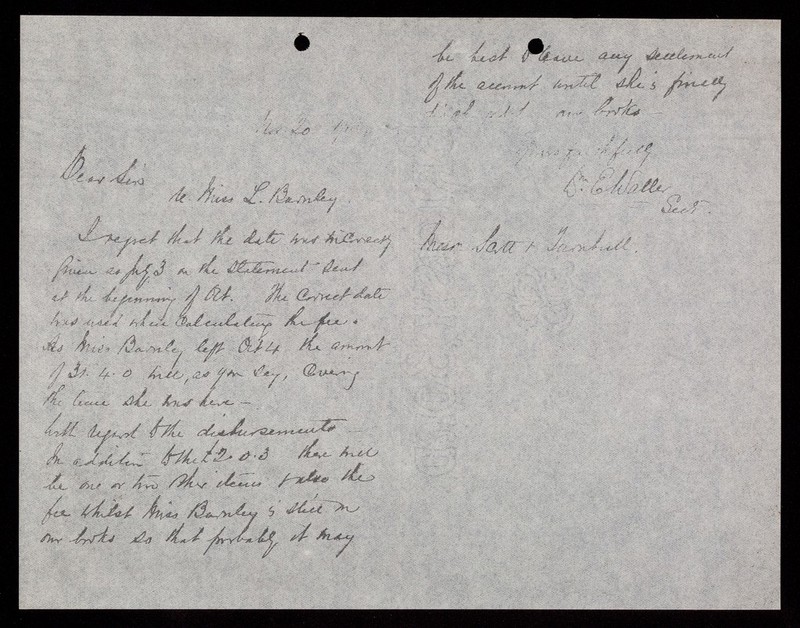 Nov 20
Dear Sirs
re Miss L. Barnley.
I regret that the date was incorrectly
given as July 3 on the statement sent
at the beginning of Oct. The correct date
was used when calculating the fee.
As Miss Barnley left Oct 4 the amount
of 31. 4. 0 will, as you say, cover
the time she was here —
With regard to the disbursements —
In addition to the £2. 0. 3 there will
be one or two other items & also the
fee whilst Miss Barnley is still on
our books so that probably it may
be best to leave any settlement
of the account until she is finally
our books —
Yours faithfully
E Waller
Secy.
Messrs Scott & Turnbull.